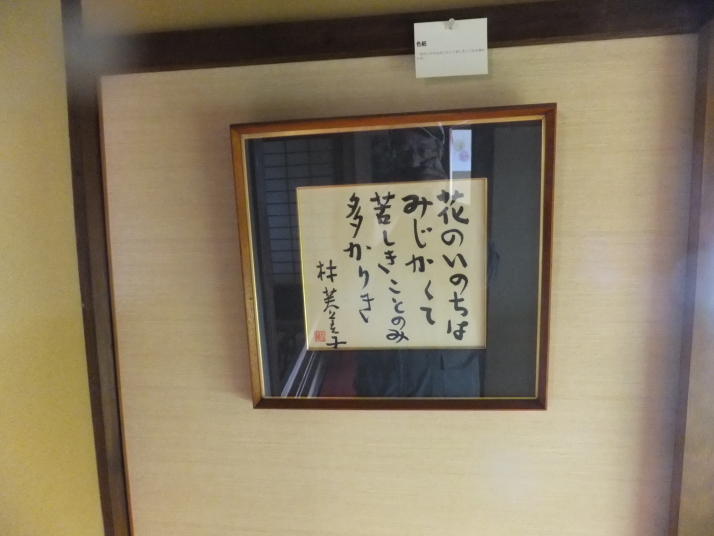 色紙
花のいのちは
みじかくて
苦しきことのみ
多かりき
林芙美子